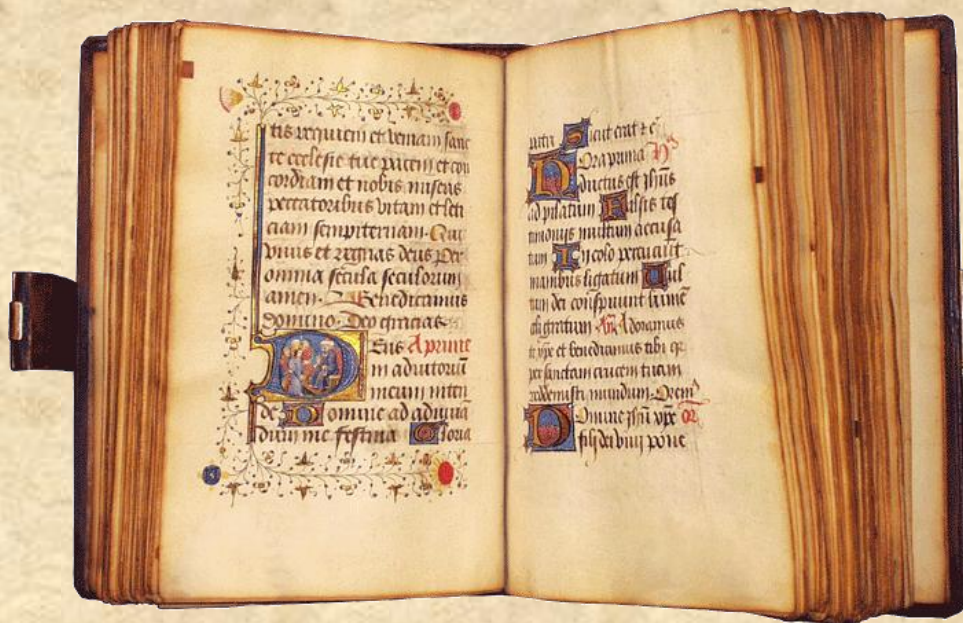 tis requiem et veniam sanc
te ecclesie tue pacem et con
cordiam et nobis miseris
peccatoribus vitam et leti
ciam sempiternam. Qui
vivis et regnas deus Per
omnia secula seculorum
amen. Benedicamus
domino. Deo gracias.
Deus A prime
in adiutoriū
meum inten
de Domine ad adiuuā
dum me festina Gloria
patri Sicut erat ⁊ c̄
Hora prima
ductus est ihūs
ad pilatum Falsis tes
timoniis multum accusa
tum In colo percuciūt
manibus ligatum Uul
tum dei conspuunt lumē
celi gratum Añ Adoramus
te xp̄e et benedicimus tibi qr
per sanctam crucem tuam
redemisti mundum. Orem⁹
Domine ihū xp̄e or̄
fili dei vivi pone